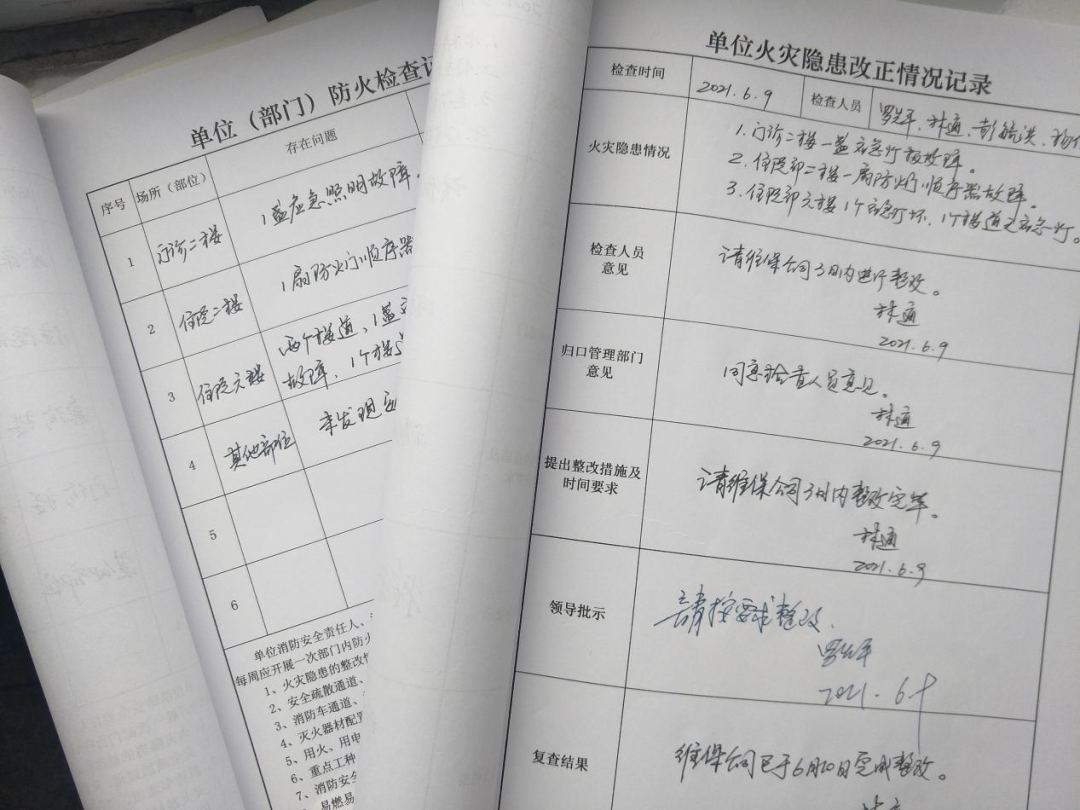 单位（部门）防火检查记
序号
场所（部位）
存在问题
1
门诊二楼
1盏应急照明故障。
2
住院二楼
1扇防火门顺序器
3
住院六楼
两个楼道，1盏
故障，1个楼
4
其他部位
未发现
5
6
单位消防安全责任人、
每周应开展一次部门内防火
1、火灾隐患的整改情
2、安全疏散通道、
3、消防车通道、
4、灭火器材配置
5、用火、用电
6、重点工种
7、消防安全
易燃易
单位火灾隐患改正情况记录
检查时间
2021.6.9
检查人员
林通、彭毓洪、
火灾隐患情况
1.门诊二楼一盏应急灯故障。
2.住院部二楼一扇防火门顺序器故障。
3.住院部六楼1个应急灯坏，1个楼道无应急灯。
检查人员
意见
请维保公司3日内进行整改。
林通
2021.6.9
归口管理部门
意见
同意检查人员意见。
林通
2021.6.9
提出整改措施及
时间要求
请维保公司3日内整改完毕。
林通
2021.6.9
领导批示
请按要求整改。
2021.6.9
复查结果
维保公司已于6月10日完成整改。